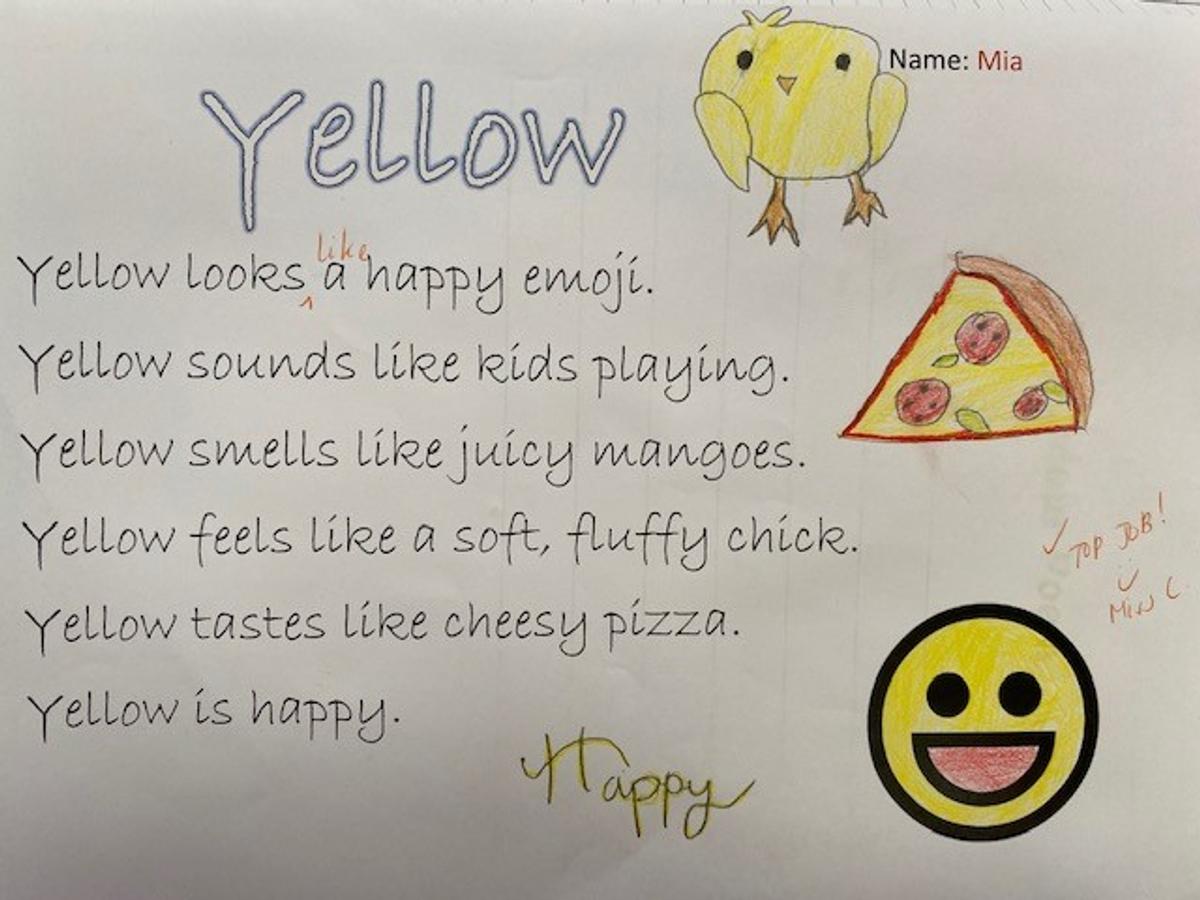 Name: Mia
Yellow
like
Yellow looks a happy emoji.
Yellow sounds like kids playing.
Yellow smells like juicy mangoes.
Yellow feels like a soft, fluffy chick.
✓ TOP JOB!
Miss C
Yellow tastes like cheesy pizza.
Yellow is happy.
Happy